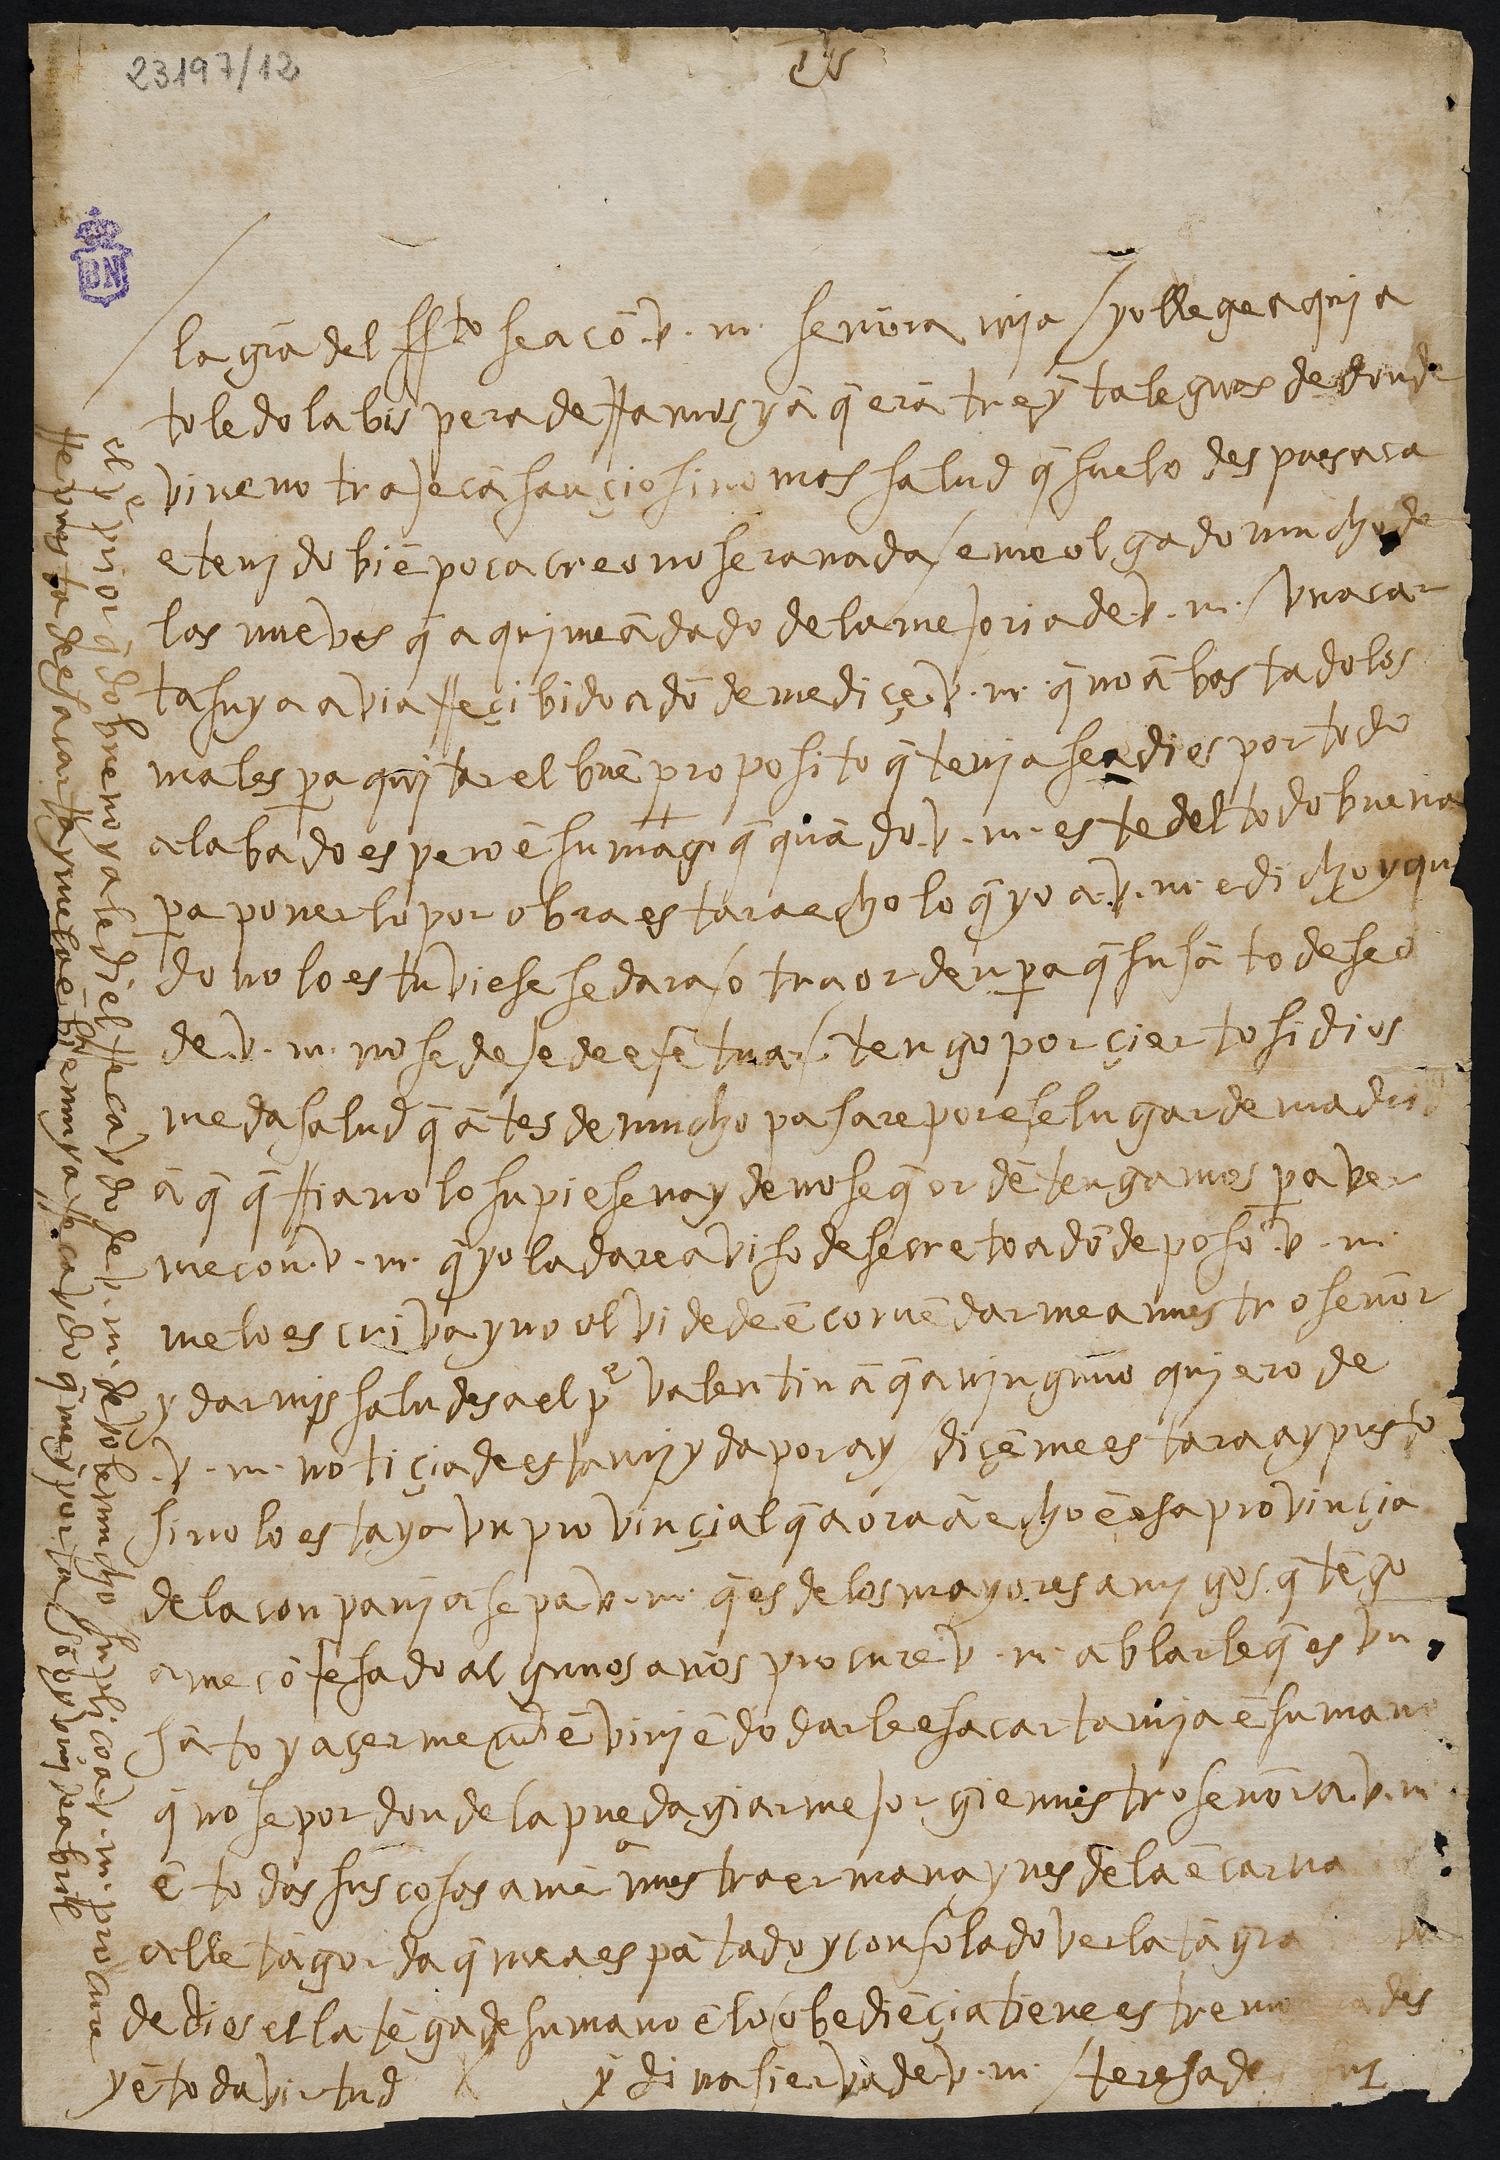 23197/12
jhs
BN
la gr̄a del sp̄u sto sea cō .v. m. señora mya / yo llege aquj a
toledo la bispera de rramos y ā q̄ erā treȳta leguas de donde
vine no traje cāsançio sino mas salud q̄ suelo despues aca
e tenjdo biē poca creo no sera nada / e me olgado mucho de
las nuevas q̄ aquj me ā dado de la mejoria de .v. m. / una car
ta suya avia rreçibido adō de me diçe .v. m. q̄ no ā bastado los
males pa quitar el buē proposito q̄ tenja sea dios por todo
alabado espero ē su mag. q̄ quādo .v. m. este del todo buena
pa ponerlo por obra estara echo lo q̄ yo a .v. m. e dicho y quā
do no lo estuviese se dara / otra orden pa q̄ su sāto deseo
de .v. m. no se deje de efetuar /. tengo por çierto si dios
me da salud q̄ ātes de mucho pasare por ese lugar de madrid
ā q̄ q̄rria no lo supiese nayde no se q̄ ordē tengamos pa ver
me con .v. m. q̄ yo la dare aviso de secreto adōde poso .v. m.
me lo escriva y no olvide de ēcomēdarme a nuestro señor
y dar mjs saludes a el pe valentin ā q̄ a njnguno qujero de
.v. m. notiçia de esta mj yda por ay / diçēme estara ay presto
si no lo esta ya un provinçial q̄ aora ā echo ē esa provinçia
de la conpanja sepa .v. m. q̄ es de los mayores amjgos q̄ tēgo
a me cōfesado algunos años procure .v. m. ablarle q̄ es un
sāto y açerme md ē vinjēdo darle esa carta mja ē su mano
q̄ no se por donde la pueda giar mejor gie nuestro señor a .v. m.
ē todas sus cosas a mē a nuestra ermana ynes de la ēcarna
alle tā gorda q̄ me a espātado y consolado ver la tā grā
de dios el la tēga de su mano ē lo / obediēçia tiene estremo des
y ē toda virtud yndina sierva de .v. m. / teresa de
el pe prior q̄do bueno ya le di el rrecavdo de .v. m. devole mucho suplico a .v. m. procure
rrespuesta de esa carta y me la ēbie muy a rrecavdo q̄ me ȳporta